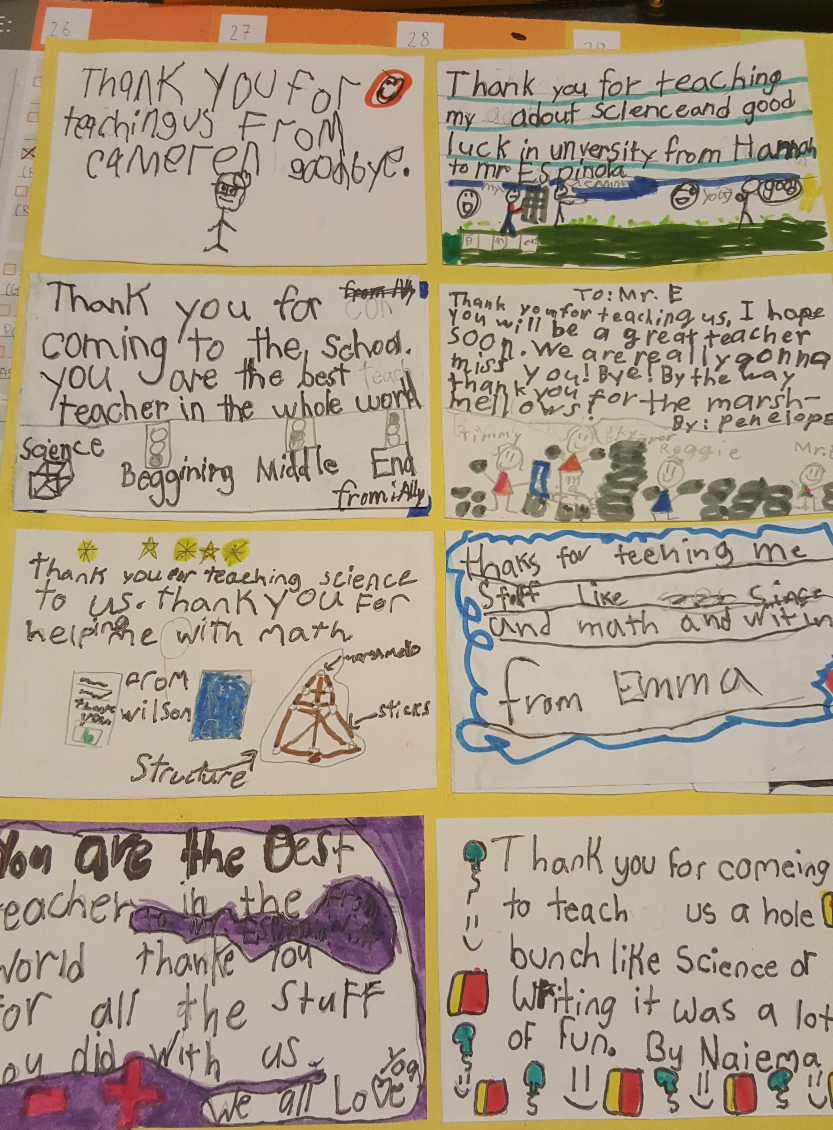 26
27
28
29
Thank you for
teaching us From
cameren goodbye.
Thank you for teaching
my adout science and good
luck in unversity from Hannah
to mr Espinola
Thank you for
coming to the school.
you are the best teach
teacher in the whole world
Science
Beggining Middle End
from: Ally
To: Mr. E
Thank you for teaching us, I hope
you will be a great teacher
soon. We are really gonna
miss you! Bye! By the way
thank you for the marsh-
mellows!
By: Penelope
Timmy
Reggie
Mr. E
Thank you for teaching science
to us. thank you For
helping me with math
From
wilson
thank
you
marshmelo
sticks
Structure
thaks for teehing me
Stoff like since
and math and writin
from Emma
You are the Best
teacher in the
world thanke you
for all the stuff
you did with us
We all Love you
Thank you for comeing
to teach us a hole
bunch like science or
writing it was a lot
of fun. By Naiema